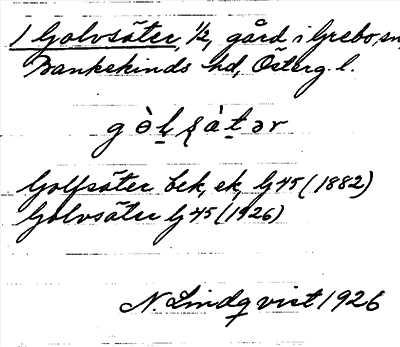 1 Golvsäter, 1/2, gård i Grebo, sn,
Bankekinds hd, Österg. l.
gòlsàtər
Golfsäter bek, ek, G 45 (1882)
Golvsäter G 45 (1926)
N. Lindqvist 1926